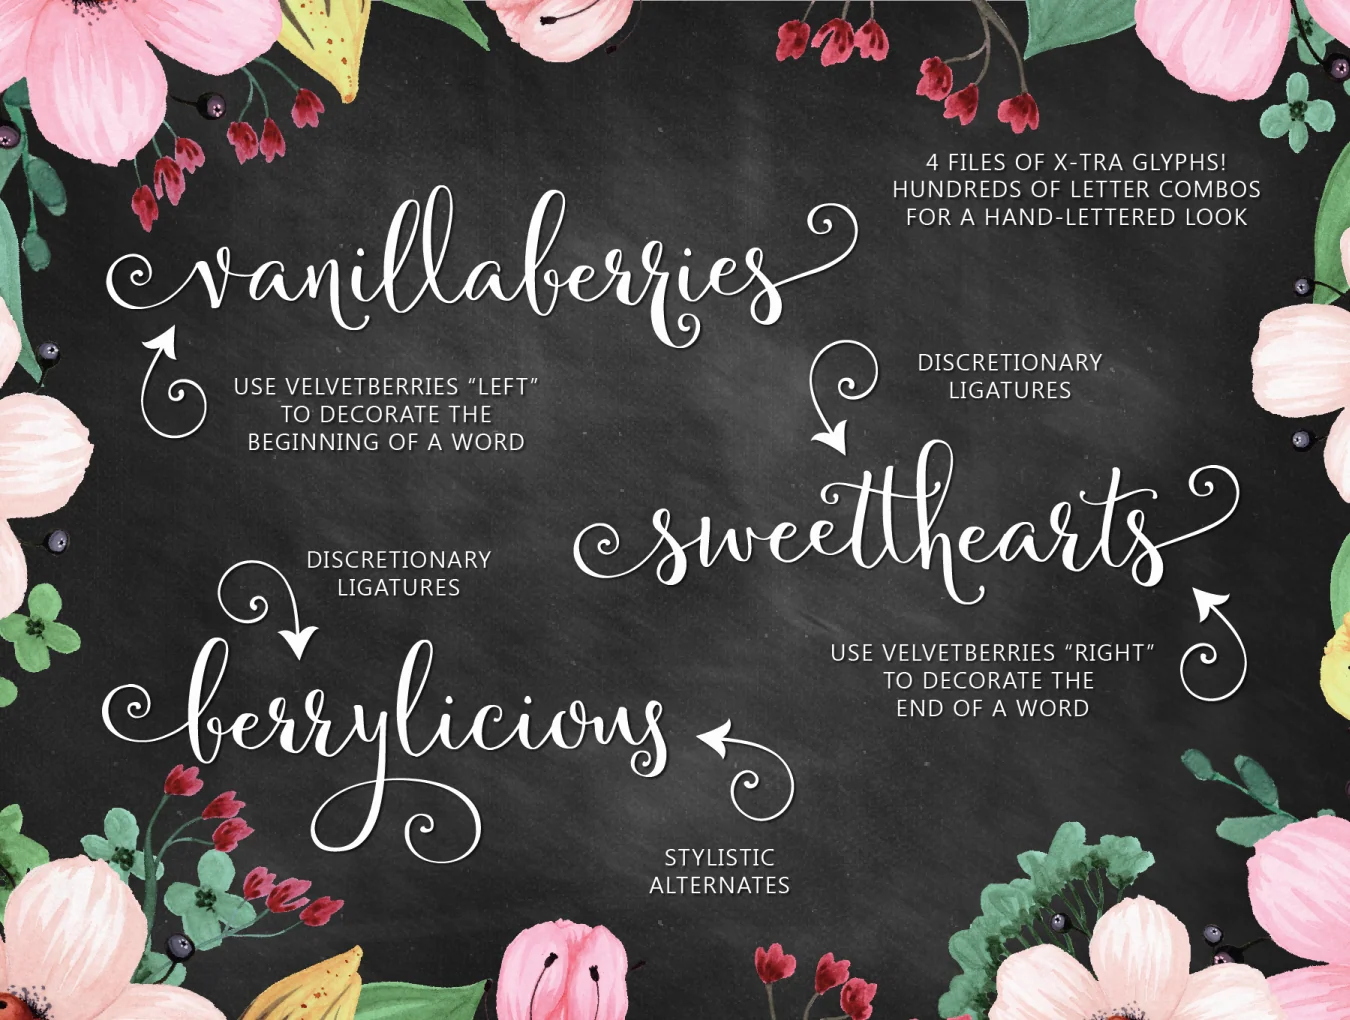 4 FILES OF X-TRA GLYPHS!
HUNDREDS OF LETTER COMBOS
FOR A HAND-LETTERED LOOK
vanillaberries
USE VELVETBERRIES “LEFT”
TO DECORATE THE
BEGINNING OF A WORD
DISCRETIONARY
LIGATURES
sweetthearts
USE VELVETBERRIES “RIGHT”
TO DECORATE THE
END OF A WORD
DISCRETIONARY
LIGATURES
berrylicious
STYLISTIC
ALTERNATES